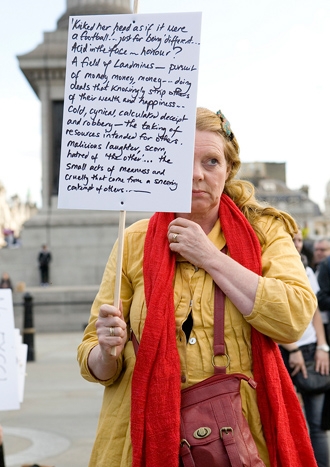 'Kicked her head as if it were
a football... just for being different...
Acid in the face — honour?
A field of Landmines — pursuit
of money, money, money — doing
deals that knowingly strip others
of their wealth and happiness...
Cold, cynical, calculated deceit
and robbery — the taking of
resources intended for others.
malicious laughter, scorn,
hatred of 'the other'... the
small acts of meanness and
cruelty that come from a sneering
contempt of others.——